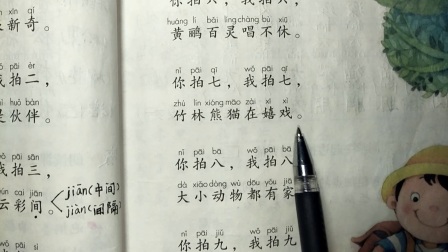 xīn qí
新奇。
pāi èr
我拍二，
huǒ bàn
是伙伴。
pāi sān
我拍三，
cǎi jiān
云彩间。
jiān(中间)
jiàn(间隔)
你拍六，我拍六，
huáng lí bǎi líng chàng bù xiū
黄鹂百灵唱不休。
nǐ pāi qī wǒ pāi qī
你拍七，我拍七，
zhú lín xióng māo zài xī xì
竹林熊猫在嬉戏。
nǐ pāi bā wǒ pāi bā
你拍八，我拍八
dà xiǎo dòng wù dōu yǒu jiā
大小动物都有家
nǐ pāi jiǔ wǒ pāi jiǔ
你拍九，我拍九